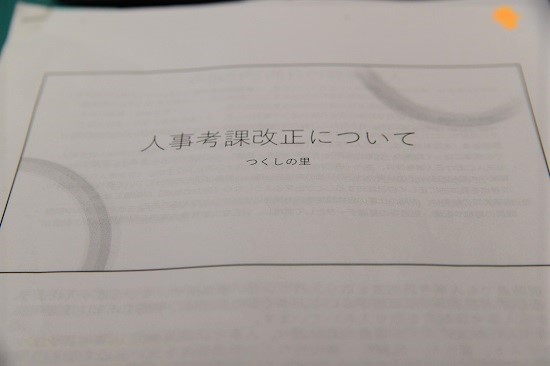 人事考課改正について
つくしの里